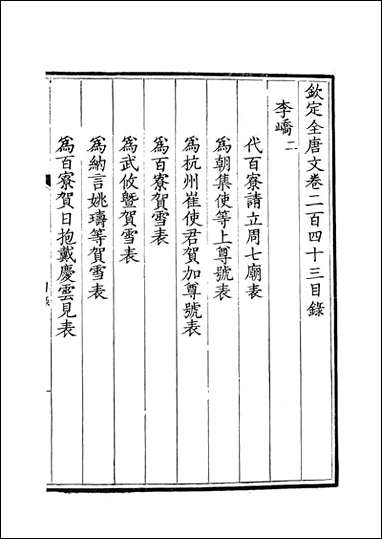 欽定全唐文卷二百四十三目錄
李嶠二
代百寮請立周七廟表
為朝集使等上尊號表
為杭州崔使君賀加尊號表
為百寮賀雪表
為武攸暨賀雪表
為納言姚璹等賀雪表
為百寮賀日抱戴慶雲見表